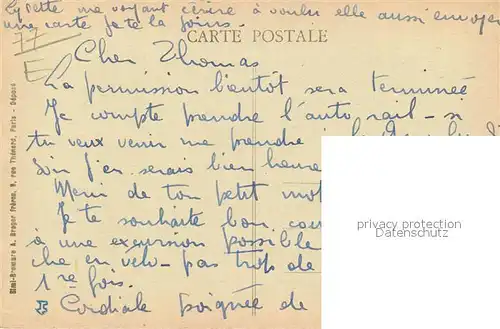 Lysette me voyant écrire à voulu elle aussi envoyer
une carte je te la joins.
CARTE POSTALE
Cher Thomas
La permission bientôt sera terminée
Je compte prendre l'auto rail - si
tu veux venir me prendre
soir j'en serais bien heure
Merci de ton petit mot
Je te souhaite bon cou
à une excursion possible
che en velo - pas trop de
1re fois.
Cordiale poignée de
privacy protection
Datenschutz